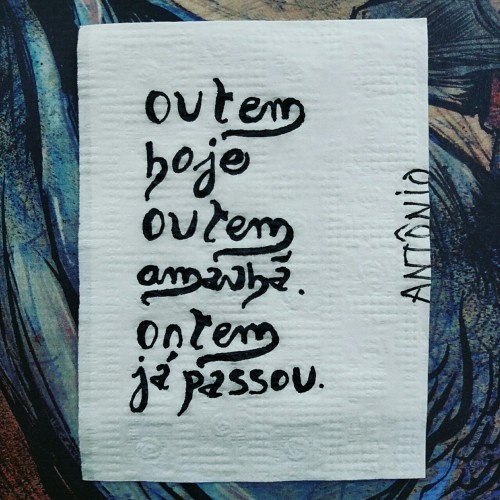 outem
hoje
outem
amanhã.
ontem
já passou.
ANTÔNIO